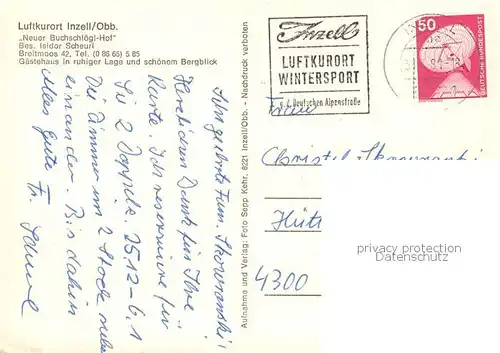 Luftkurort Inzell/Obb.
„Neuer Buchschlögl-Hof"
Bes. Isidor Scheurl
Breitmoos 42, Tel. (0 86 65) 5 85
Gästehaus in ruhiger Lage und schönem Bergblick
Sehr geehrte Fam. Skowranski!
Herzlichen Dank für Ihre
Karte. Ich reserviere für
Sie 2 Doppelz. 25.12 - 6.1
Die Zimmer im 2 Stock neben
einander. Bis dahin
Alles Gute Fr.
Aufnahme und Verlag: Foto Sepp Kehr, 8221 Inzell/Obb. - Nachdruck verboten
Inzell
LUFTKURORT
WINTERSPORT
a. d. Deutschen Alpenstraße
50
DEUTSCHE BUNDESPOST
Frau
Christel Skowranski
Hütt
4300
privacy protection
VDM